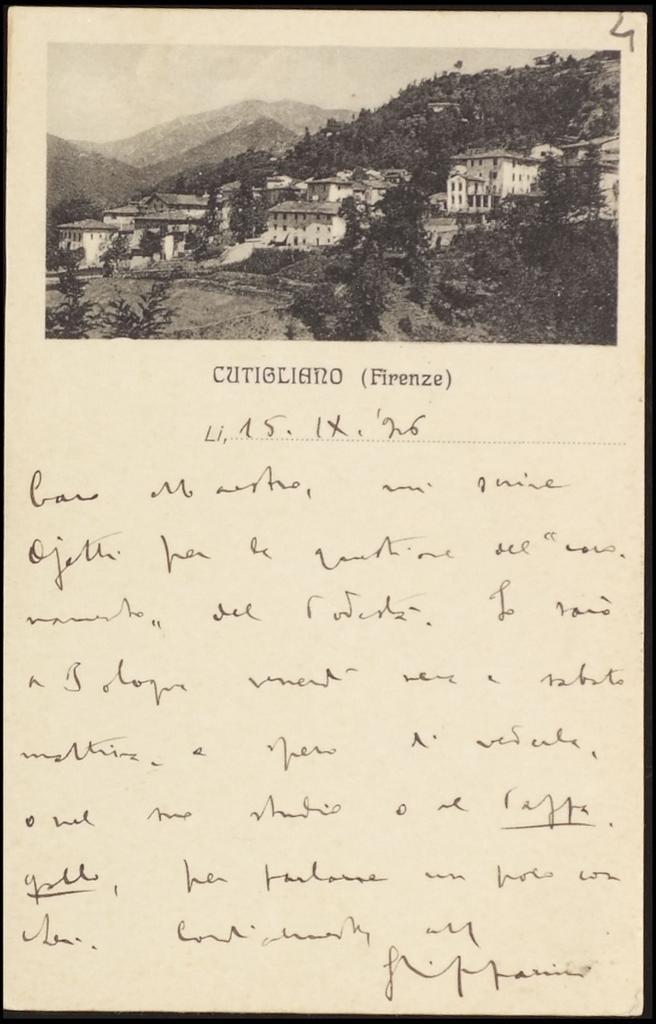 4
CUTIGLIANO (Firenze)
Li, 15. IX. '26
Caro Maestro, mi scrive
Ojetti per la questione del "coro-
namento" del Podestà. Io sarò
a Bologna venerdì sera e sabato
mattina. e spero di vederla,
o nel suo studio o al Pappa
gallo, per parlarne un poco con
Lei. Cordialmente